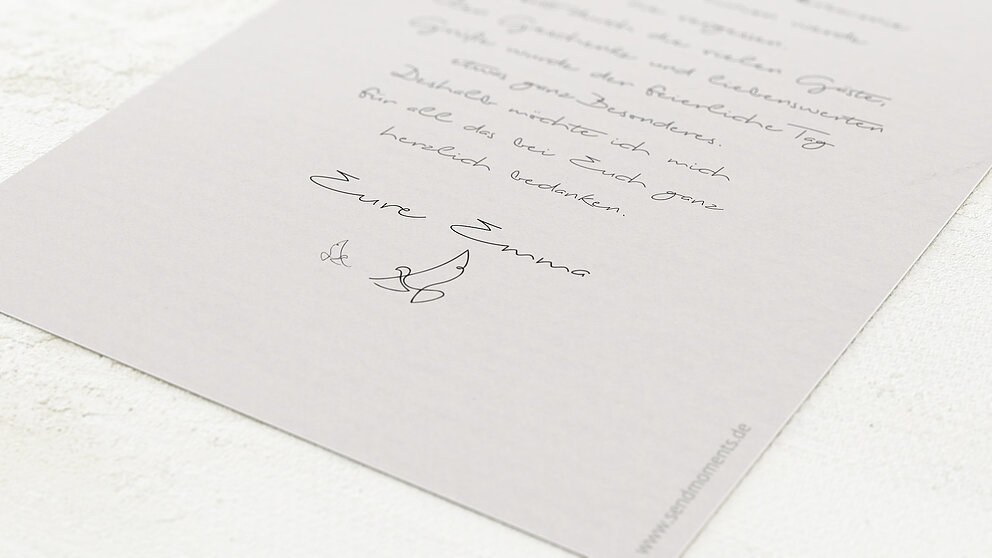 werde
vergessen.
die vielen Gäste,
Geschenke und liebenswerten
Grüße wurde der feierliche Tag
etwas ganz Besonderes.
Deshalb möchte ich mich
für all das bei Euch ganz
herzlich bedanken.
Eure Emma
www.sendmoments.de